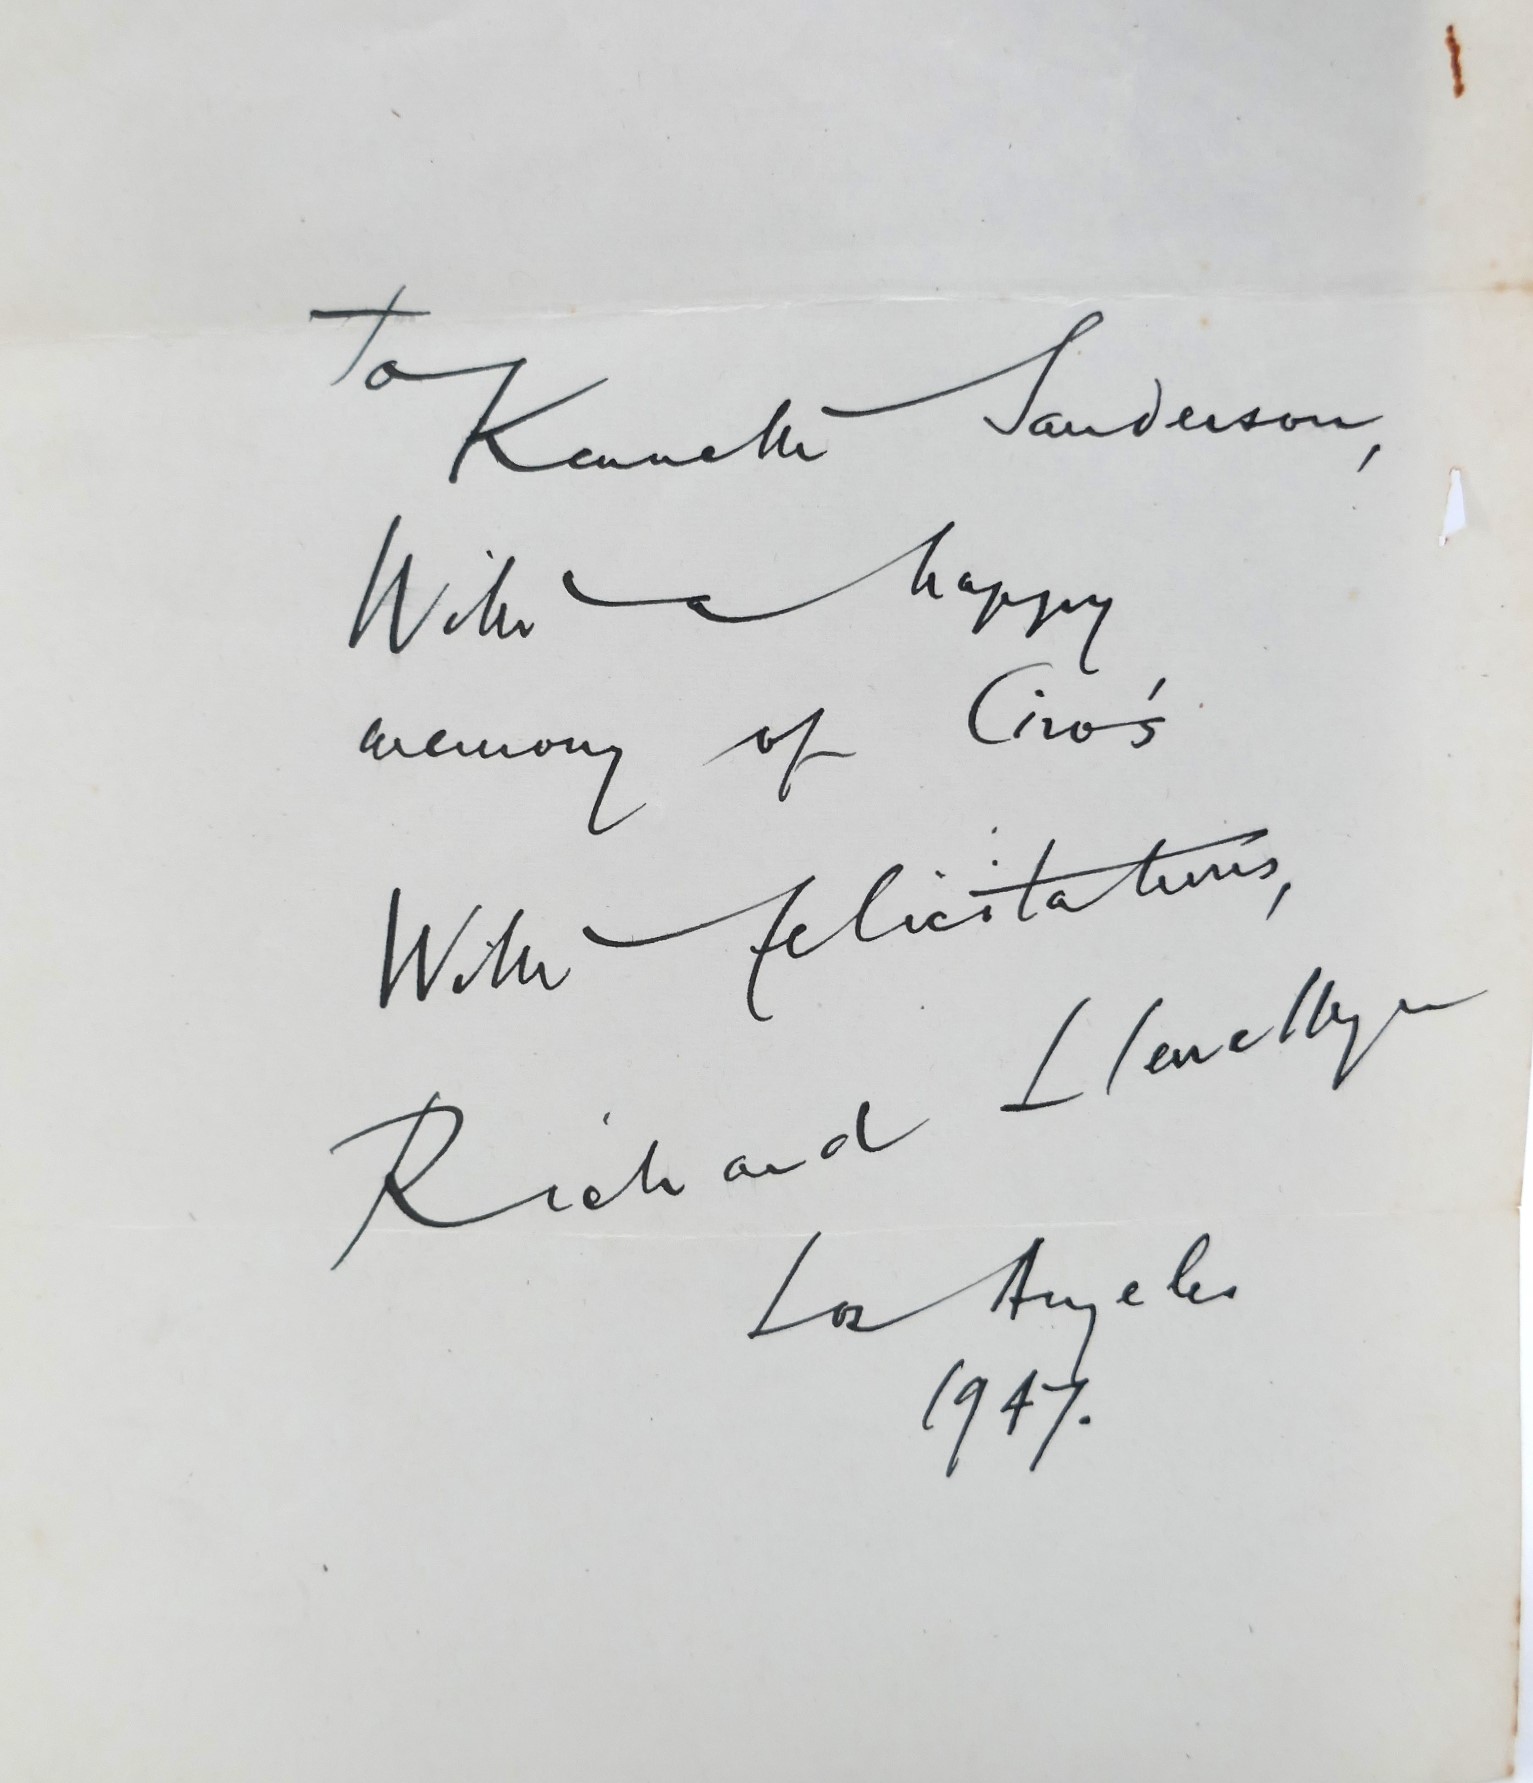 To
Kenneth Sanderson,
With a happy
memory of Ciro's
With felicitations,
Richard Llewellyn
Los Angeles
1947.